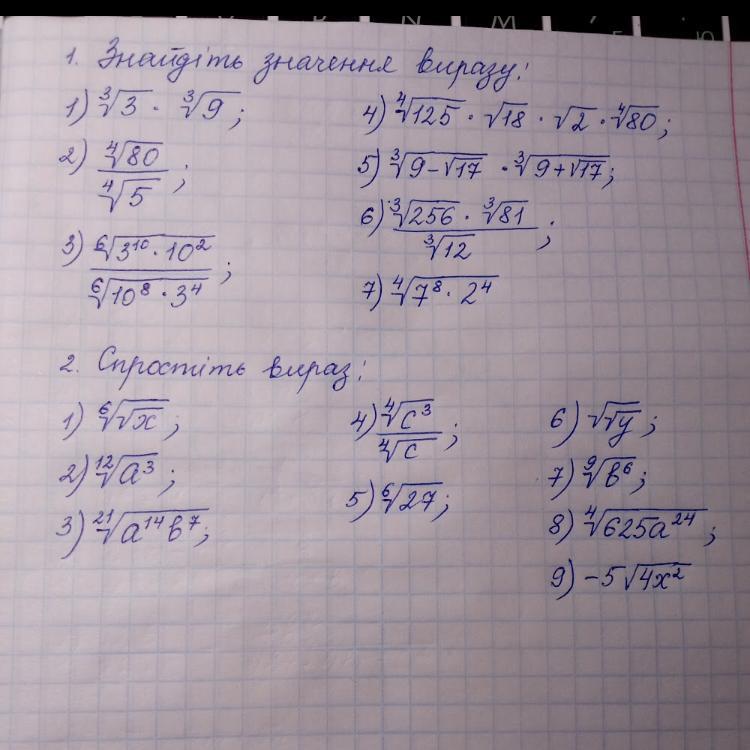 1. Знайдіть значення виразу:
1) ∛3 · ∛9;
2) ∜80 / ∜5;
3) ⁶√(3¹⁰ · 10²) / ⁶√(10⁸ · 3⁴);
4) ∜125 · √18 · √2 · ∜80;
5) ∛(9-√17) · ∛(9+√17);
6) ∛256 · ∛81 / ∛12;
7) ∜(7⁸ · 2⁴)
2. Спростіть вираз:
1) ⁶√√x;
2) ¹²√a³;
3) ²¹√(a¹⁴b⁷);
4) ∜c³ / ∜c;
5) ⁶√27;
6) √√y;
7) ⁹√b⁶;
8) ∜(625a²⁴);
9) -5√(4x²)